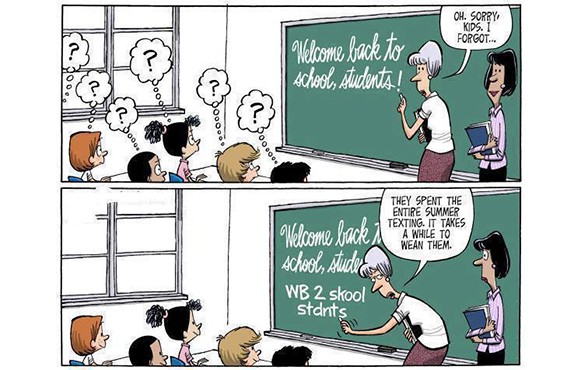 ?
?
?
?
?
?
Welcome back to
school, students!
OH. SORRY,
KIDS. I
FORGOT...
Welcome back t
school, stude
WB 2 skool
stdnts
THEY SPENT THE
ENTIRE SUMMER
TEXTING. IT TAKES
A WHILE TO
WEAN THEM.